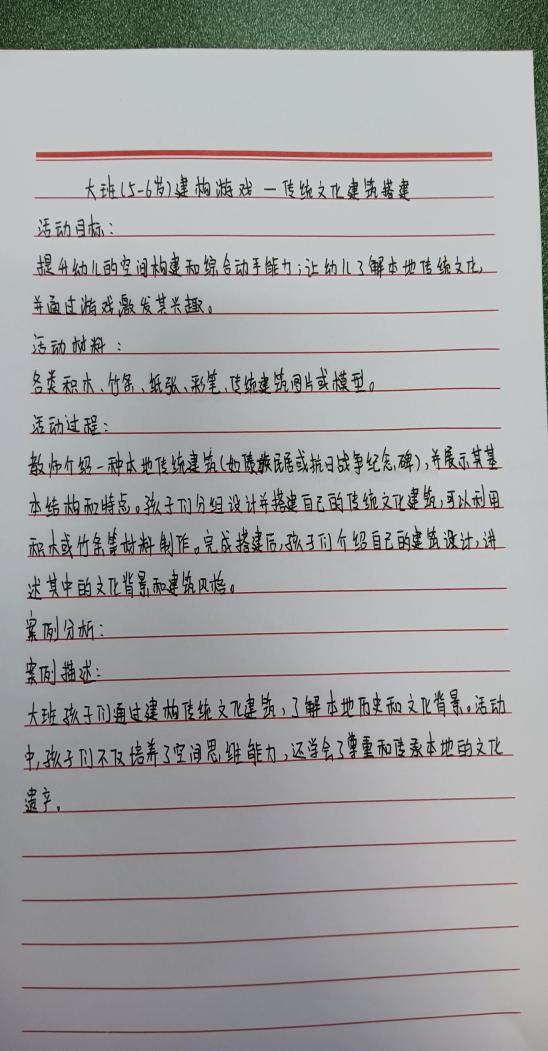 大班(5-6岁)建构游戏—传统文化建筑搭建
活动目标：
提升幼儿的空间构建和综合动手能力；让幼儿了解本地传统文化，
并通过游戏激发其兴趣。
活动材料：
各类积木、竹条、纸张、彩笔、传统建筑图片或模型。
活动过程：
教师介绍一种本地传统建筑(如民居或抗日战争纪念碑)，并展示其基
本结构和特点。孩子们分组设计并搭建自己的传统文化建筑，可以利用
积木或竹条等材料制作。完成搭建后，孩子们介绍自己的建筑设计，讲
述其中的文化背景和建筑风格。
案例分析：
案例描述：
大班孩子们通过建构传统文化建筑，了解本地历史和文化背景。活动
中，孩子们不仅培养了空间思维能力，还学会了尊重和传承本地的文化
遗产。